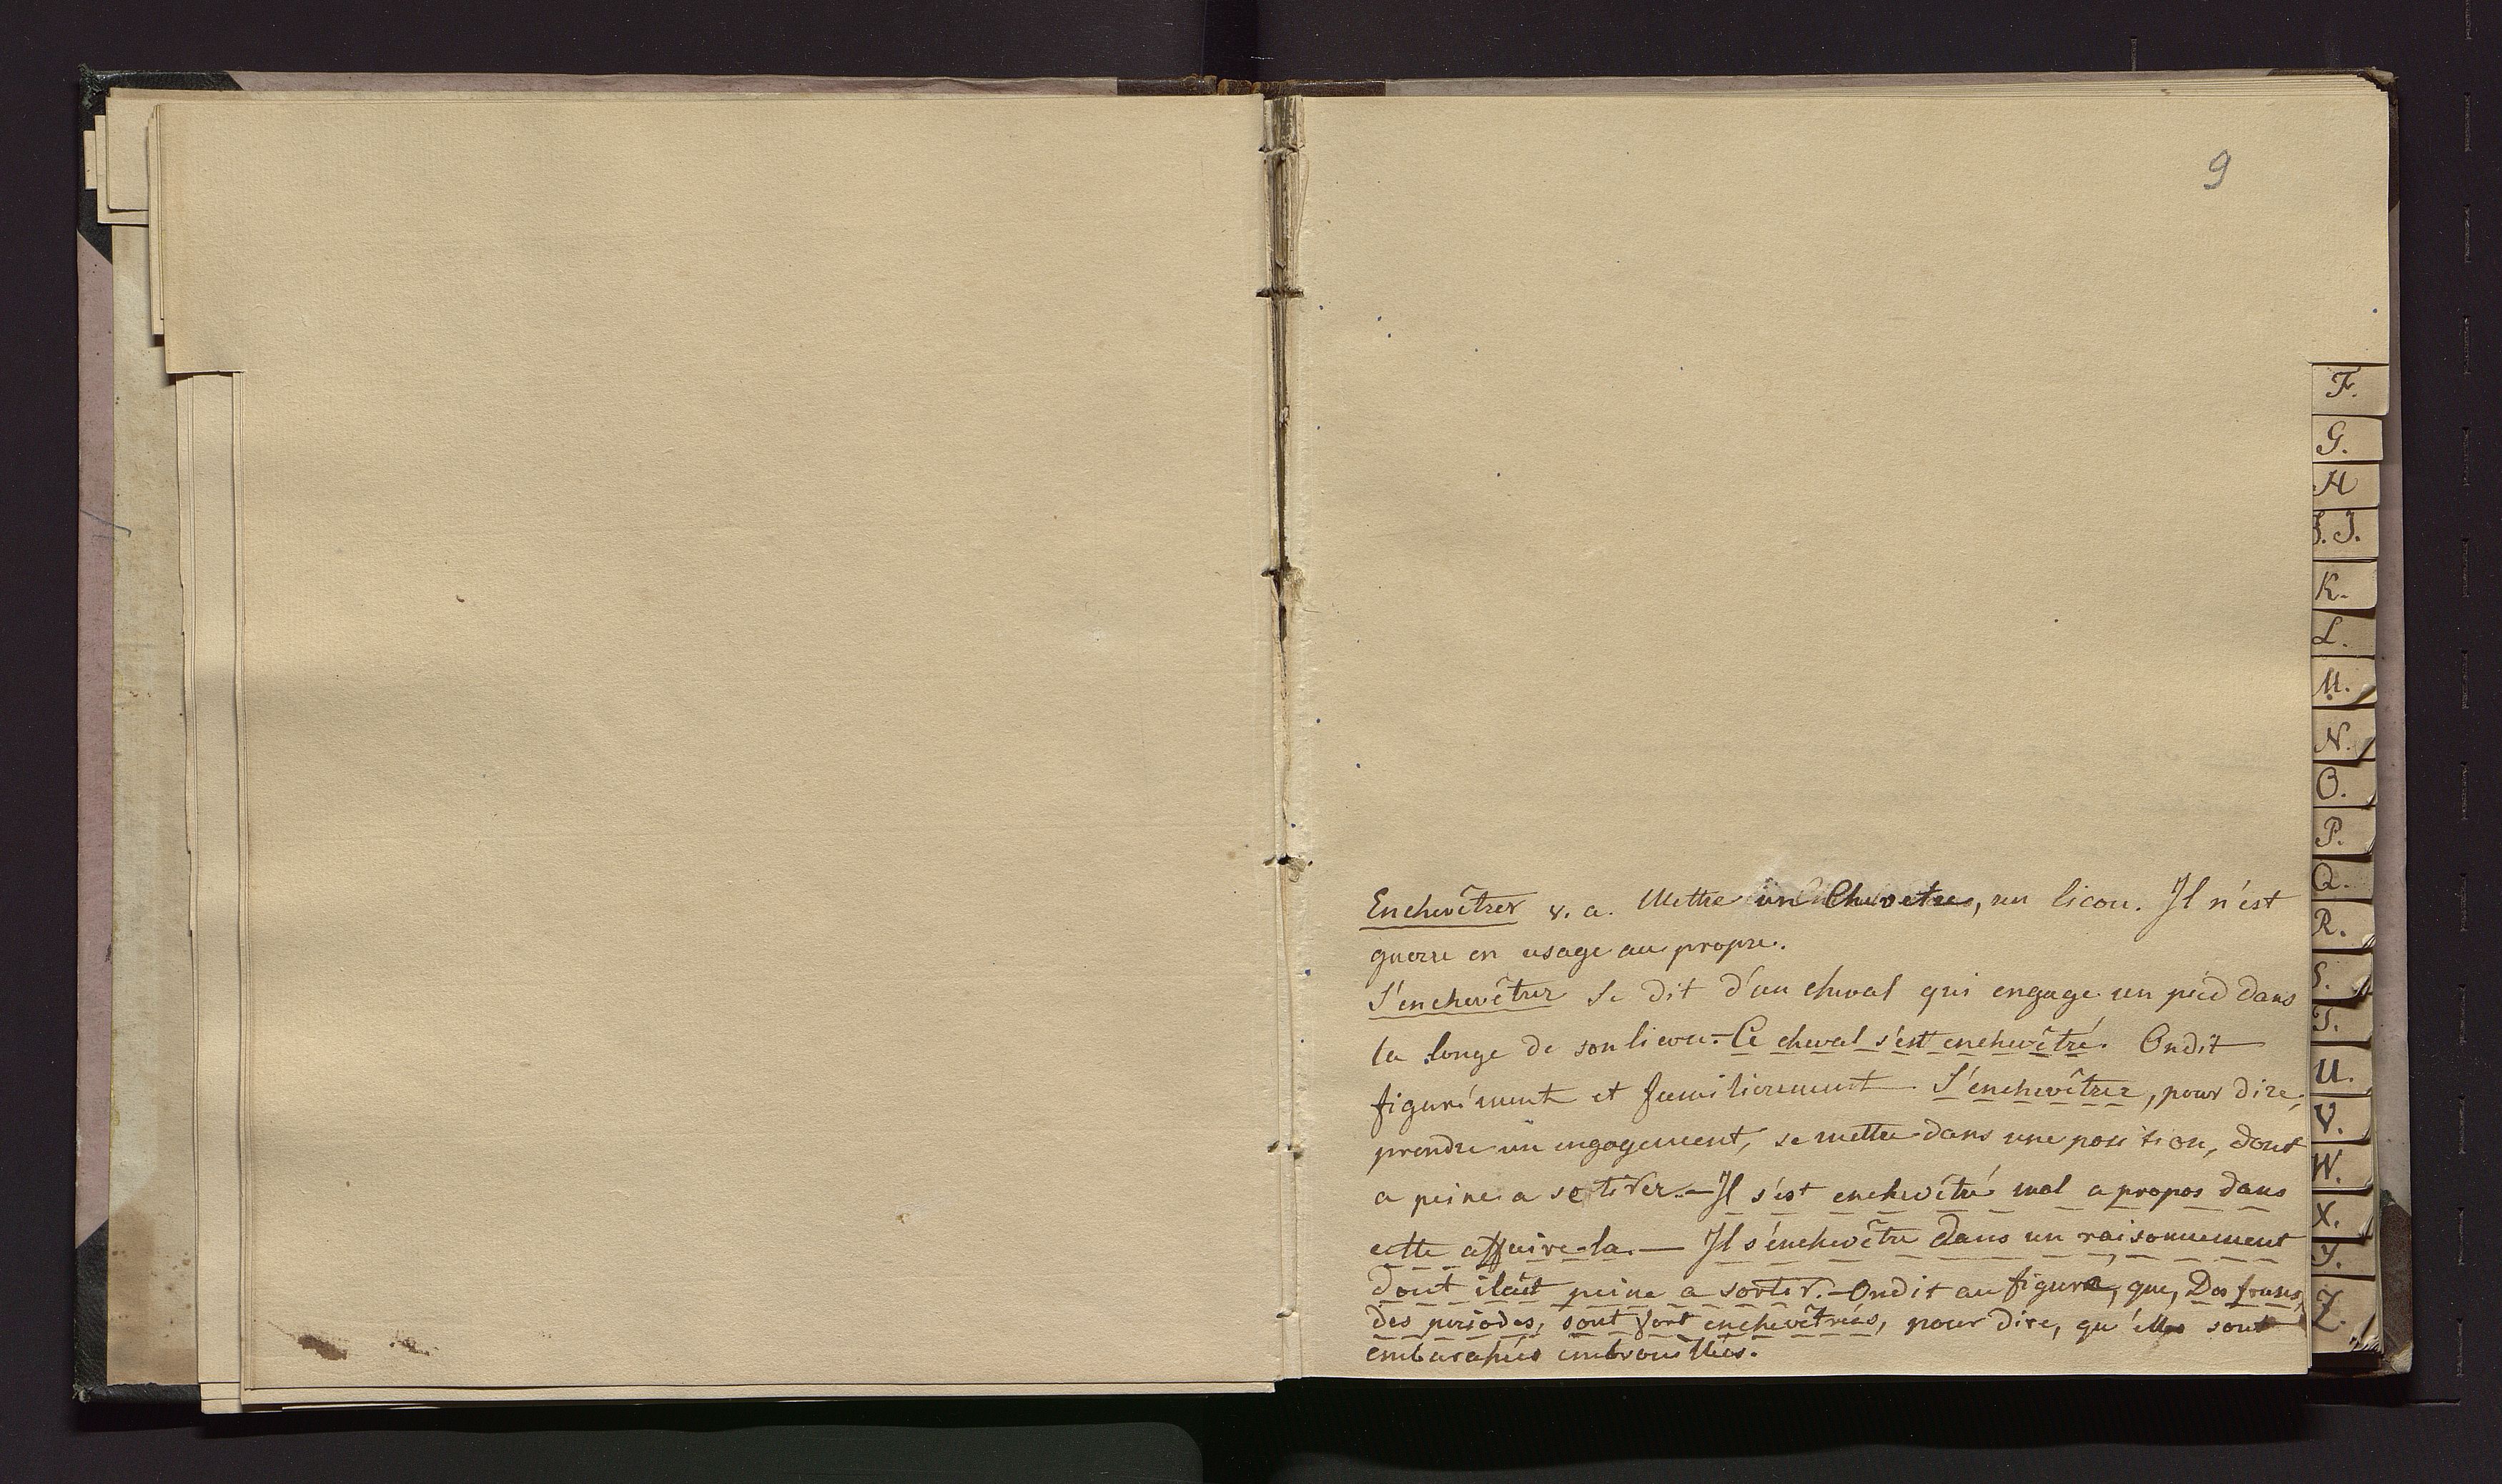 9
Enchevêtrer v. a. Mettre un Chevetre, un licou. Il n'est
guerre en usage au propre.
S'enchevêtrer Se dit d'un cheval qui engage un pied dans
la longe de son licou. - Ce cheval s'est enchevêtré. On dit
figurément et familierement S'enchevêtrer, pour dire,
prendre un engagement, se mettre dans une position, dont
a peine a se tirer. - Il s'est enchevêtré mal a propos dans
cette affaire-la. - Il s'enchevêtre dans un raisonnement
dont il aüt peine a sortir. - On dit au figure, que, Des frases,
des periodes, sont fort enchevêtrées, pour dire, qu'elles sont
embarassées embrouillées.
F.
G.
H
J. I.
K.
L.
M.
N.
O.
P.
Q.
R.
S.
T.
U.
V.
W.
X.
Y.
Z.